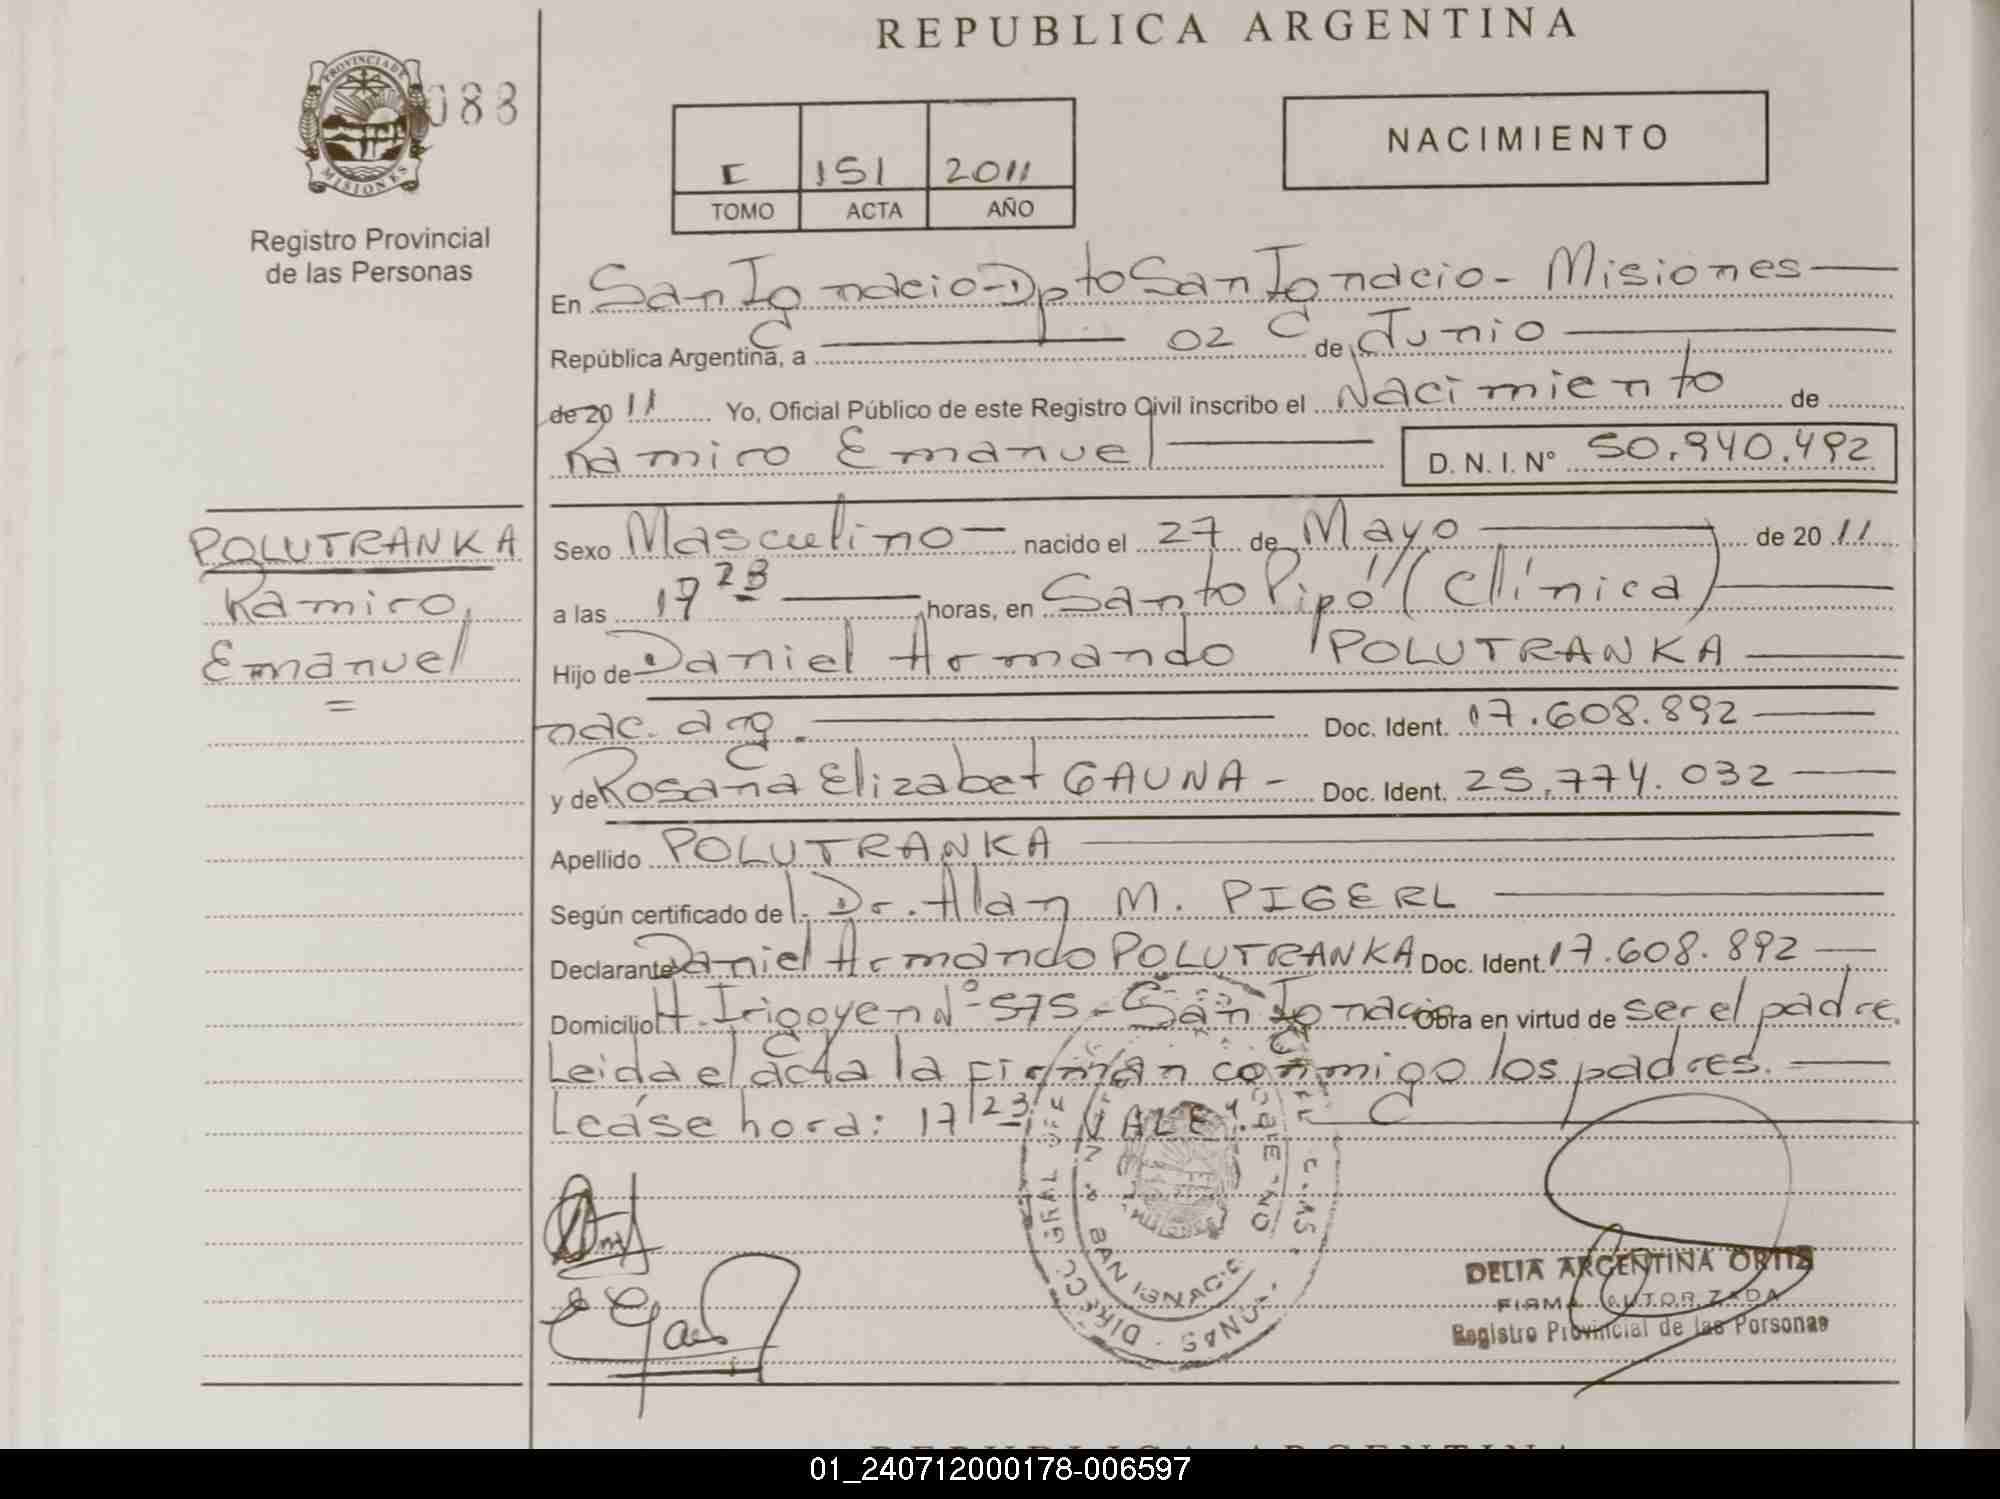 REPUBLICA ARGENTINA
PROVINCIA DE
MISIONES
088
Registro Provincial
de las Personas
I 151 2011
TOMO ACTA AÑO
NACIMIENTO
En San Ignacio - Dpto San Ignacio - Misiones
República Argentina, a 02 de Junio
de 2011 Yo, Oficial Público de este Registro Civil inscribo el Nacimiento de
Ramiro Emanuel D. N. I. Nº 50.940.492
POLUTRANKA
Ramiro,
Emanuel
=
Sexo Masculino - nacido el 27 de Mayo de 2011
a las 17 23 horas, en Santo Pipó (Clínica)
Hijo de Daniel Armando POLUTRANKA
nac. arg. Doc. Ident. 17.608.892
y de Rosana Elizabet GAUNA - Doc. Ident. 25.774.032
Apellido POLUTRANKA
Según certificado de Dr. Alan M. PIGERL
Declarante Daniel Armando POLUTRANKA Doc. Ident. 17.608.892
Domicilio H. Irigoyen Nº 575 - San Ignacio Obra en virtud de ser el padre.
Leida el acta la firman conmigo los padres.
Lease hora: 17 23 VALE.
DELIA ARGENTINA ORTIZ
FIRMA AUTORIZADA
Registro Provincial de las Personas
REPUBLICA ARGENTINA
01_240712000178-006597